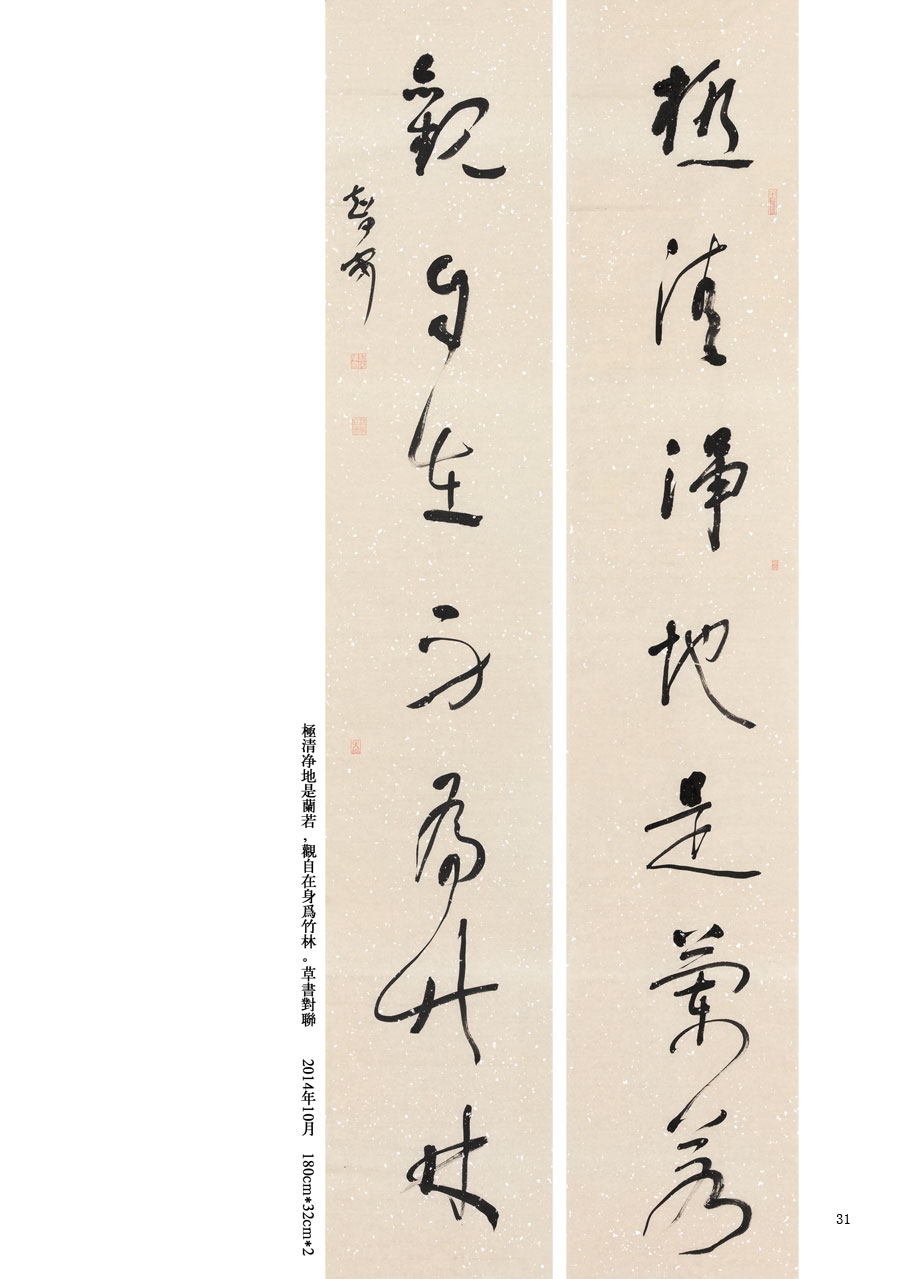 極清淨地是蘭若
觀自在身為竹林
極清净地是蘭若，觀自在身爲竹林。草書對聯　2014年10月　180cm*32cm*2
31